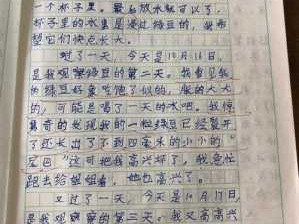 一个杯子里。最后放水就可以了，
杯子里的水要是漫过绿豆的，我希
望它们快点长大。
过了一天，今天是10月16日，
是我观察绿豆的第二天。我看见我
的绿豆好象吃饱了似的，胀的大大
的，可能是喝了一天的水吧。我惊
奇的发现我的一粒绿豆已经裂开
了还长出了不到四毫米的小小的"
尾巴"这可把我高兴坏了，我急忙
跑去给姐姐看，她也高兴了。
又过了一天，今天是10月17日，
是我观察的第三天。我又高高兴